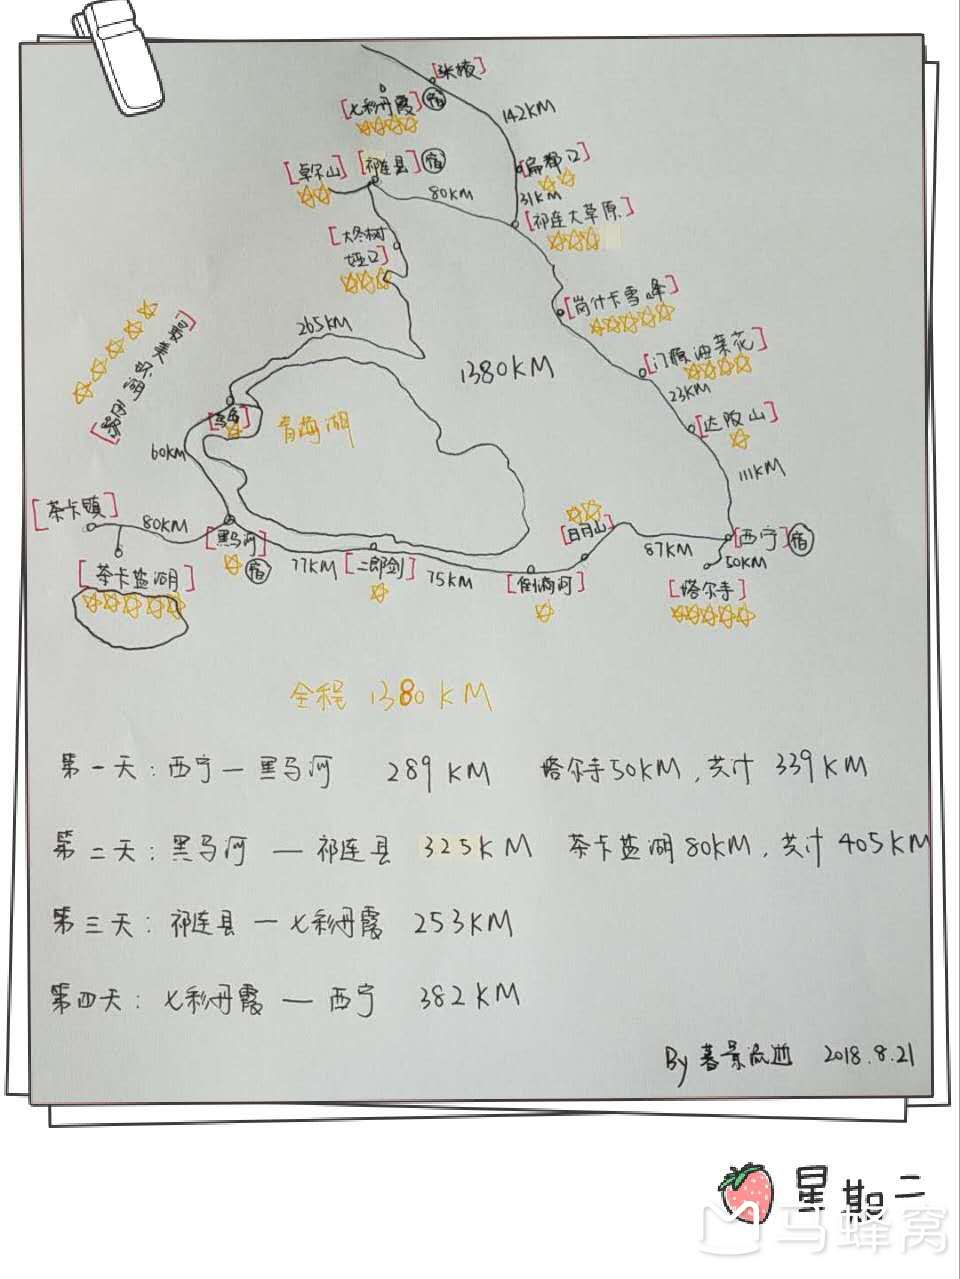 [张掖]
[七彩丹霞] 宿
142KM
[卓尔山]
[祁连县] 宿
[扁都口]
80KM
31KM
[祁连大草原]
[大冬树
垭口]
[岗什卡雪峰]
265KM
[最美环湖西路]
1380KM
[门源油菜花]
23KM
[鸟岛]
青海湖
[达坂山]
60KM
111KM
[茶卡镇]
80KM
[黑马河] 宿
[日月山]
87KM
[西宁] 宿
50KM
77KM
[二郎剑]
75KM
[倒淌河]
[塔尔寺]
[茶卡盐湖]
全程 1380KM
第一天：西宁—黑马河 289KM 塔尔寺50KM，共计 339KM
第二天：黑马河—祁连县 325KM 茶卡盐湖80KM，共计 405KM
第三天：祁连县—七彩丹霞 253KM
第四天：七彩丹霞—西宁 382KM
By 暮景流逝 2018.8.21
星期二
马蜂窝